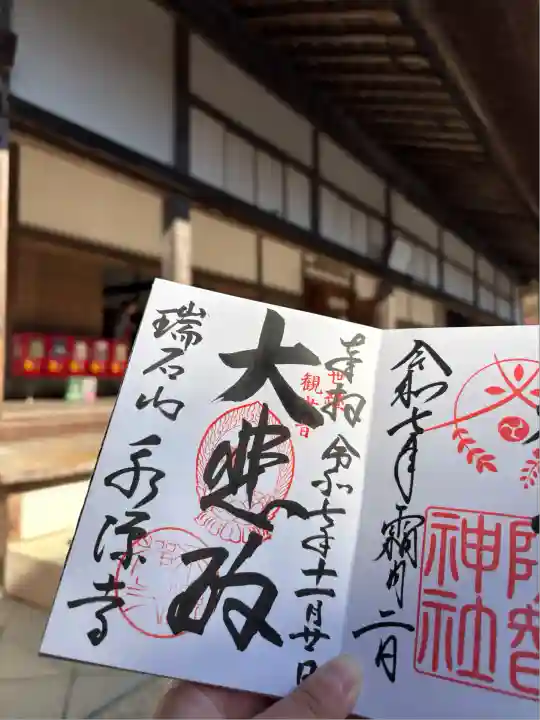 神社
令和七年霜月二日
奉拝 令和七年十一月廿日
世継
観世音
大悲殿
瑞石山 永源寺